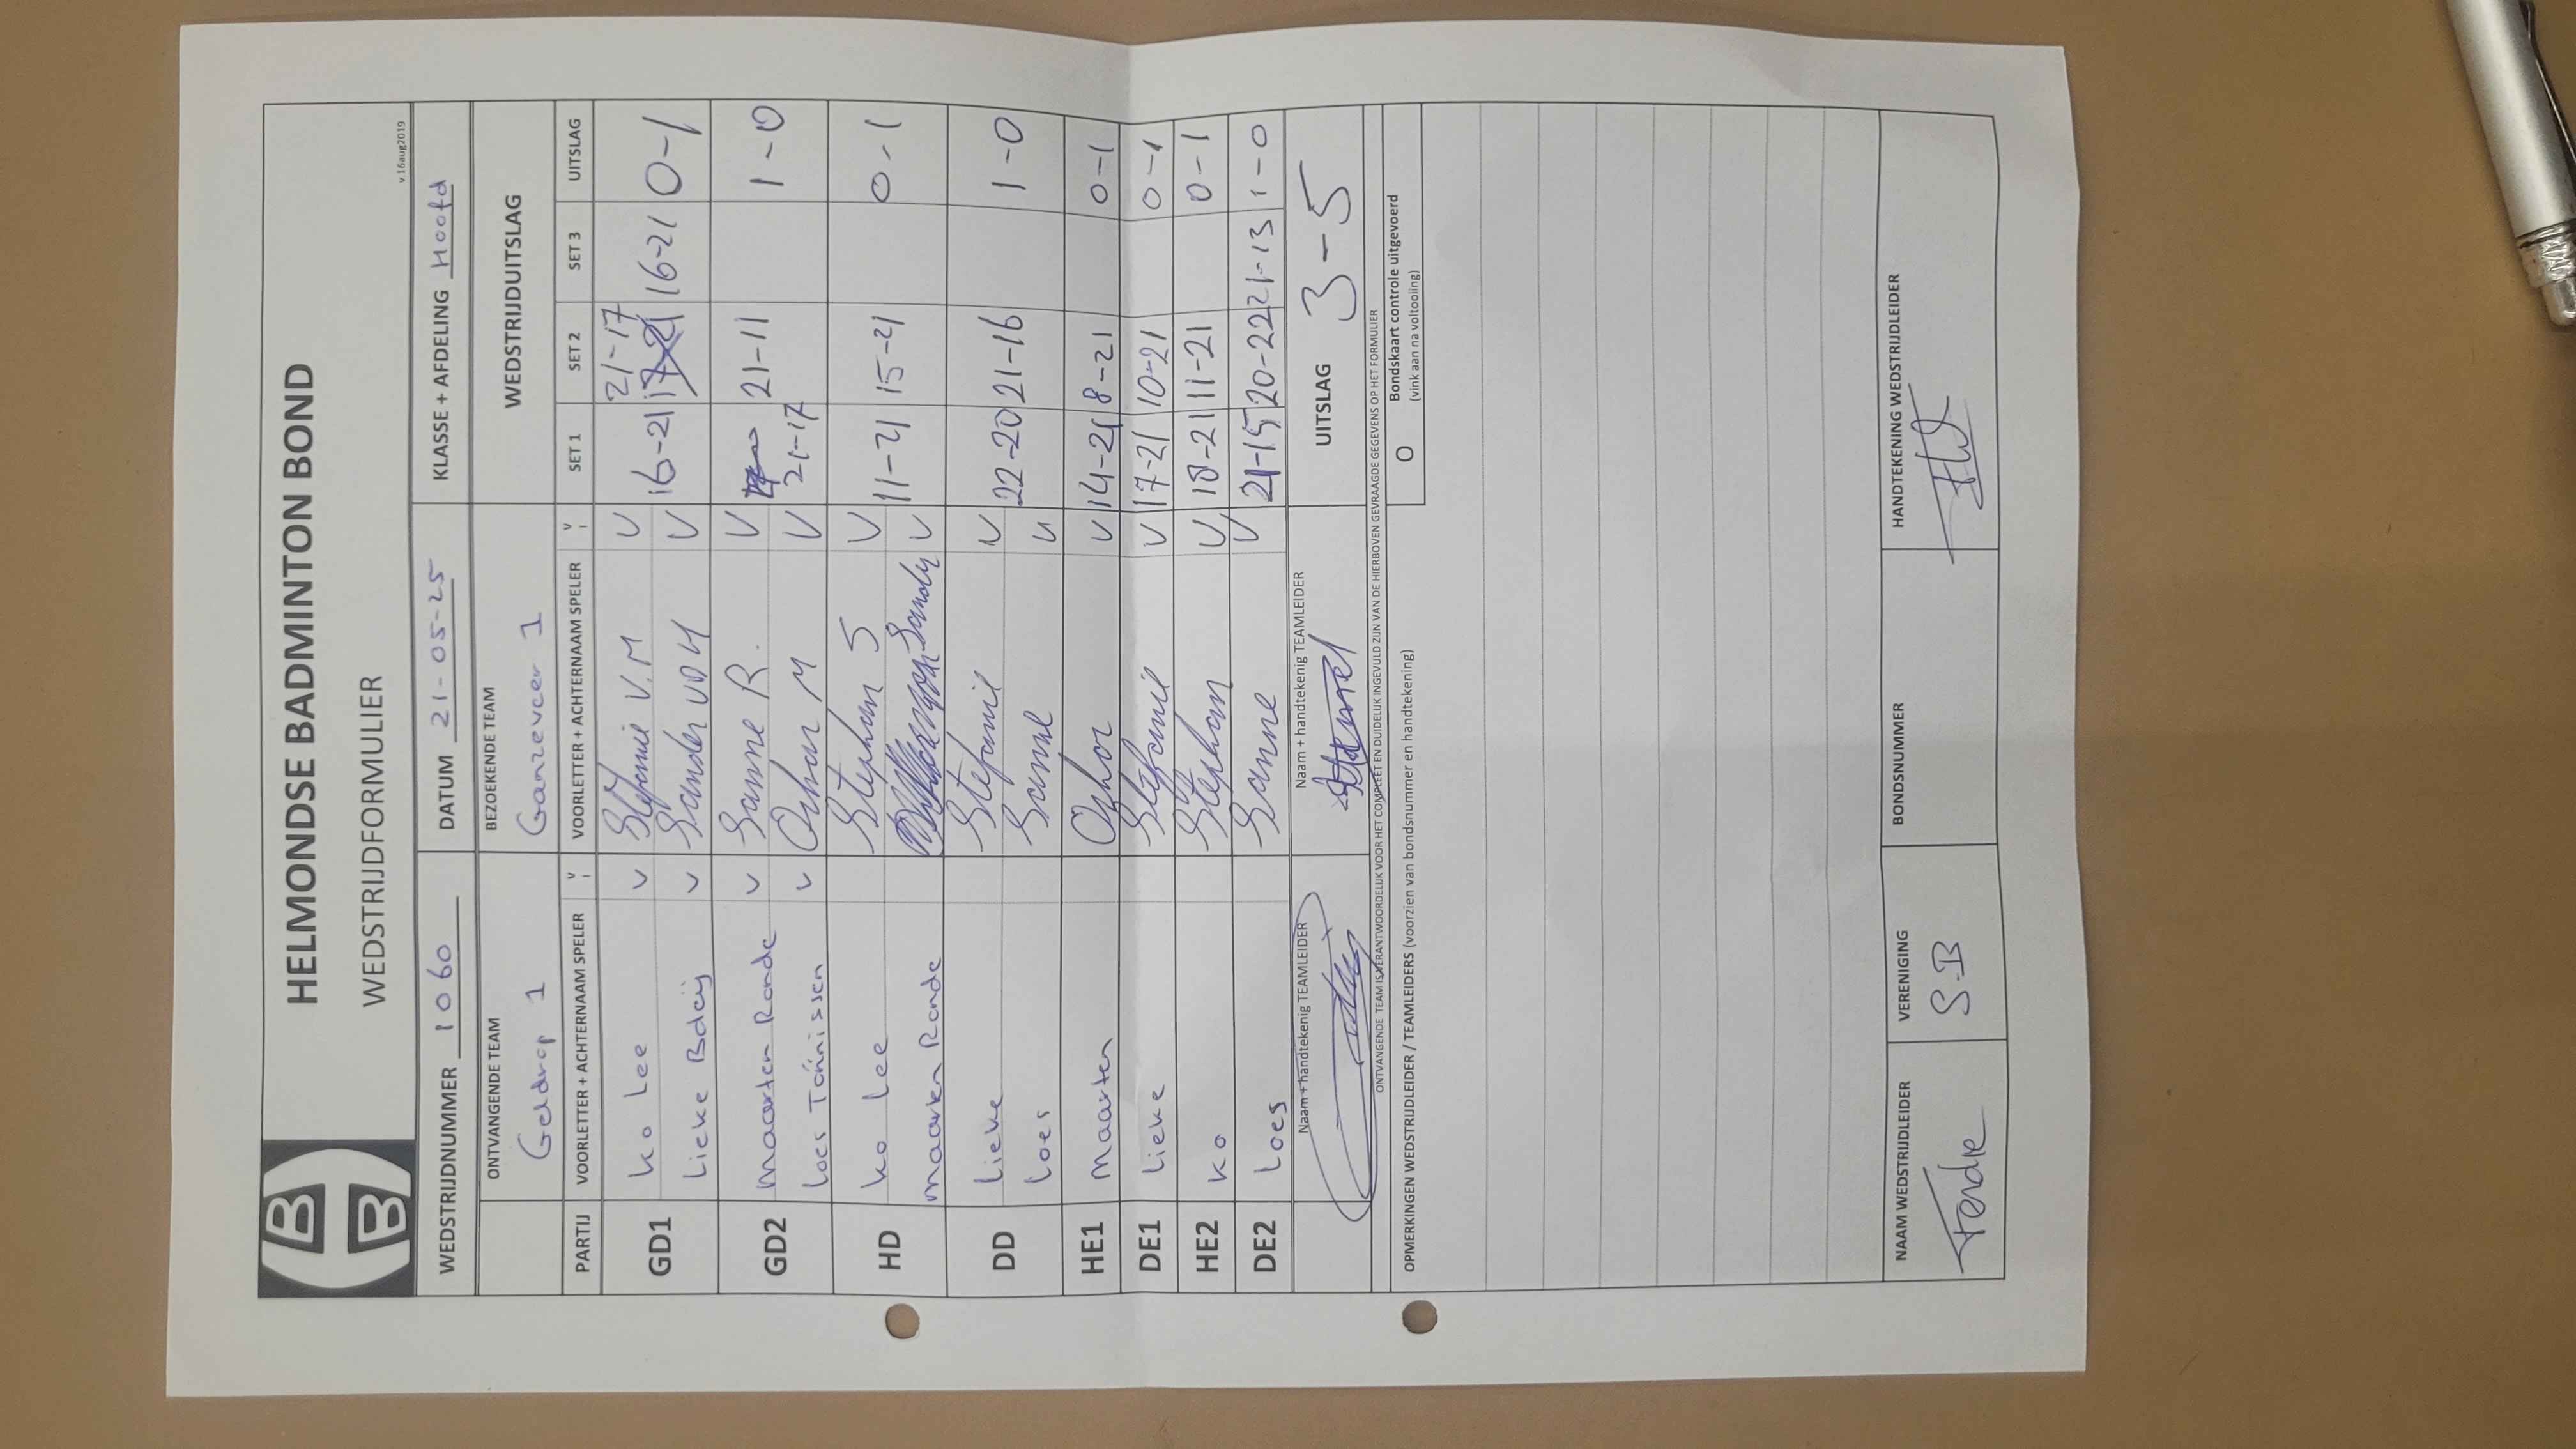 HELMONDSE BADMINTON BOND
WEDSTRIJDFORMULIER
v.16aug2019
WEDSTRIJDNUMMER 1060 DATUM 21-05-25 KLASSE + AFDELING Hoofd
ONTVANGENDE TEAM BEZOEKENDE TEAM WEDSTRIJDUITSLAG
Geldrop 1 Ganzeveer 1
PARTIJ VOORLETTER + ACHTERNAAM SPELER V VOORLETTER + ACHTERNAAM SPELER V SET 1 SET 2 SET 3 UITSLAG
GD1 Ko Lee V Stefanie V.M V 16-21 21-17 16-21 0-1
Lieke Bdaij V Sander VDH V
GD2 Maarten Rande V Sanne R. V 21-17 21-11 1-0
Loes Tönnissen V M V
HD Ko Lee Stephan S V 11-21 15-21 0-1
Maarten Rande Sander V
DD Lieke Stefanie V 22-20 21-16 1-0
Loes Sanne V
HE1 Maarten V 14-21 8-21 0-1
DE1 Lieke Stefanie V 17-21 10-21 0-1
HE2 Ko Stephan V 18-21 11-21 0-1
DE2 Loes Sanne V 21-15 20-22 21-13 1-0
Naam + handtekenig TEAMLEIDER Naam + handtekenig TEAMLEIDER UITSLAG 3-5
ONTVANGENDE TEAM IS VERANTWOORDELIJK VOOR HET COMPLEET EN DUIDELIJK INGEVULD ZIJN VAN DE HIERBOVEN GEVRAAGDE GEGEVENS OP HET FORMULIER
OPMERKINGEN WEDSTRIJDLEIDER / TEAMLEIDERS (voorzien van bondsnummer en handtekening) O Bondskaart controle uitgevoerd
(vink aan na voltooiing)
NAAM WEDSTRIJDLEIDER VERENIGING BONDSNUMMER HANDTEKENING WEDSTRIJDLEIDER
Ferdie S-B